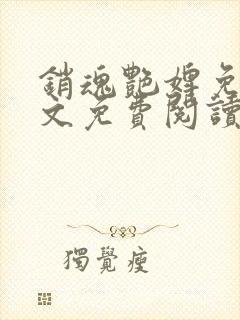 銷魂艷婢免
文免費閱讀
獨覺瘦